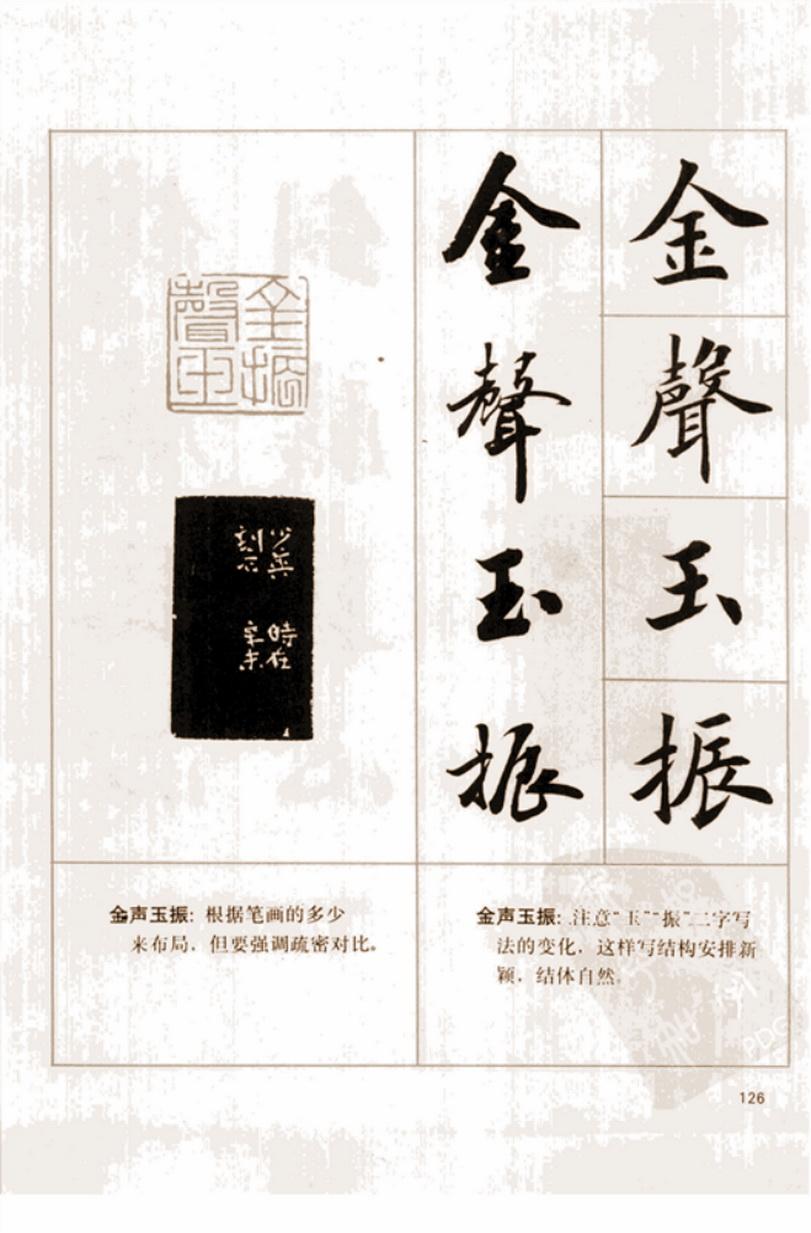 金
聲
玉
振
金
聲
玉
振
金振
聲玉
时在
辛未
金声玉振: 根据笔画的多少
来布局,但要强调疏密对比。
金声玉振: 注意“玉”“振”二字写
法的变化,这样写结构安排新
颖,结体自然。
PDG
126